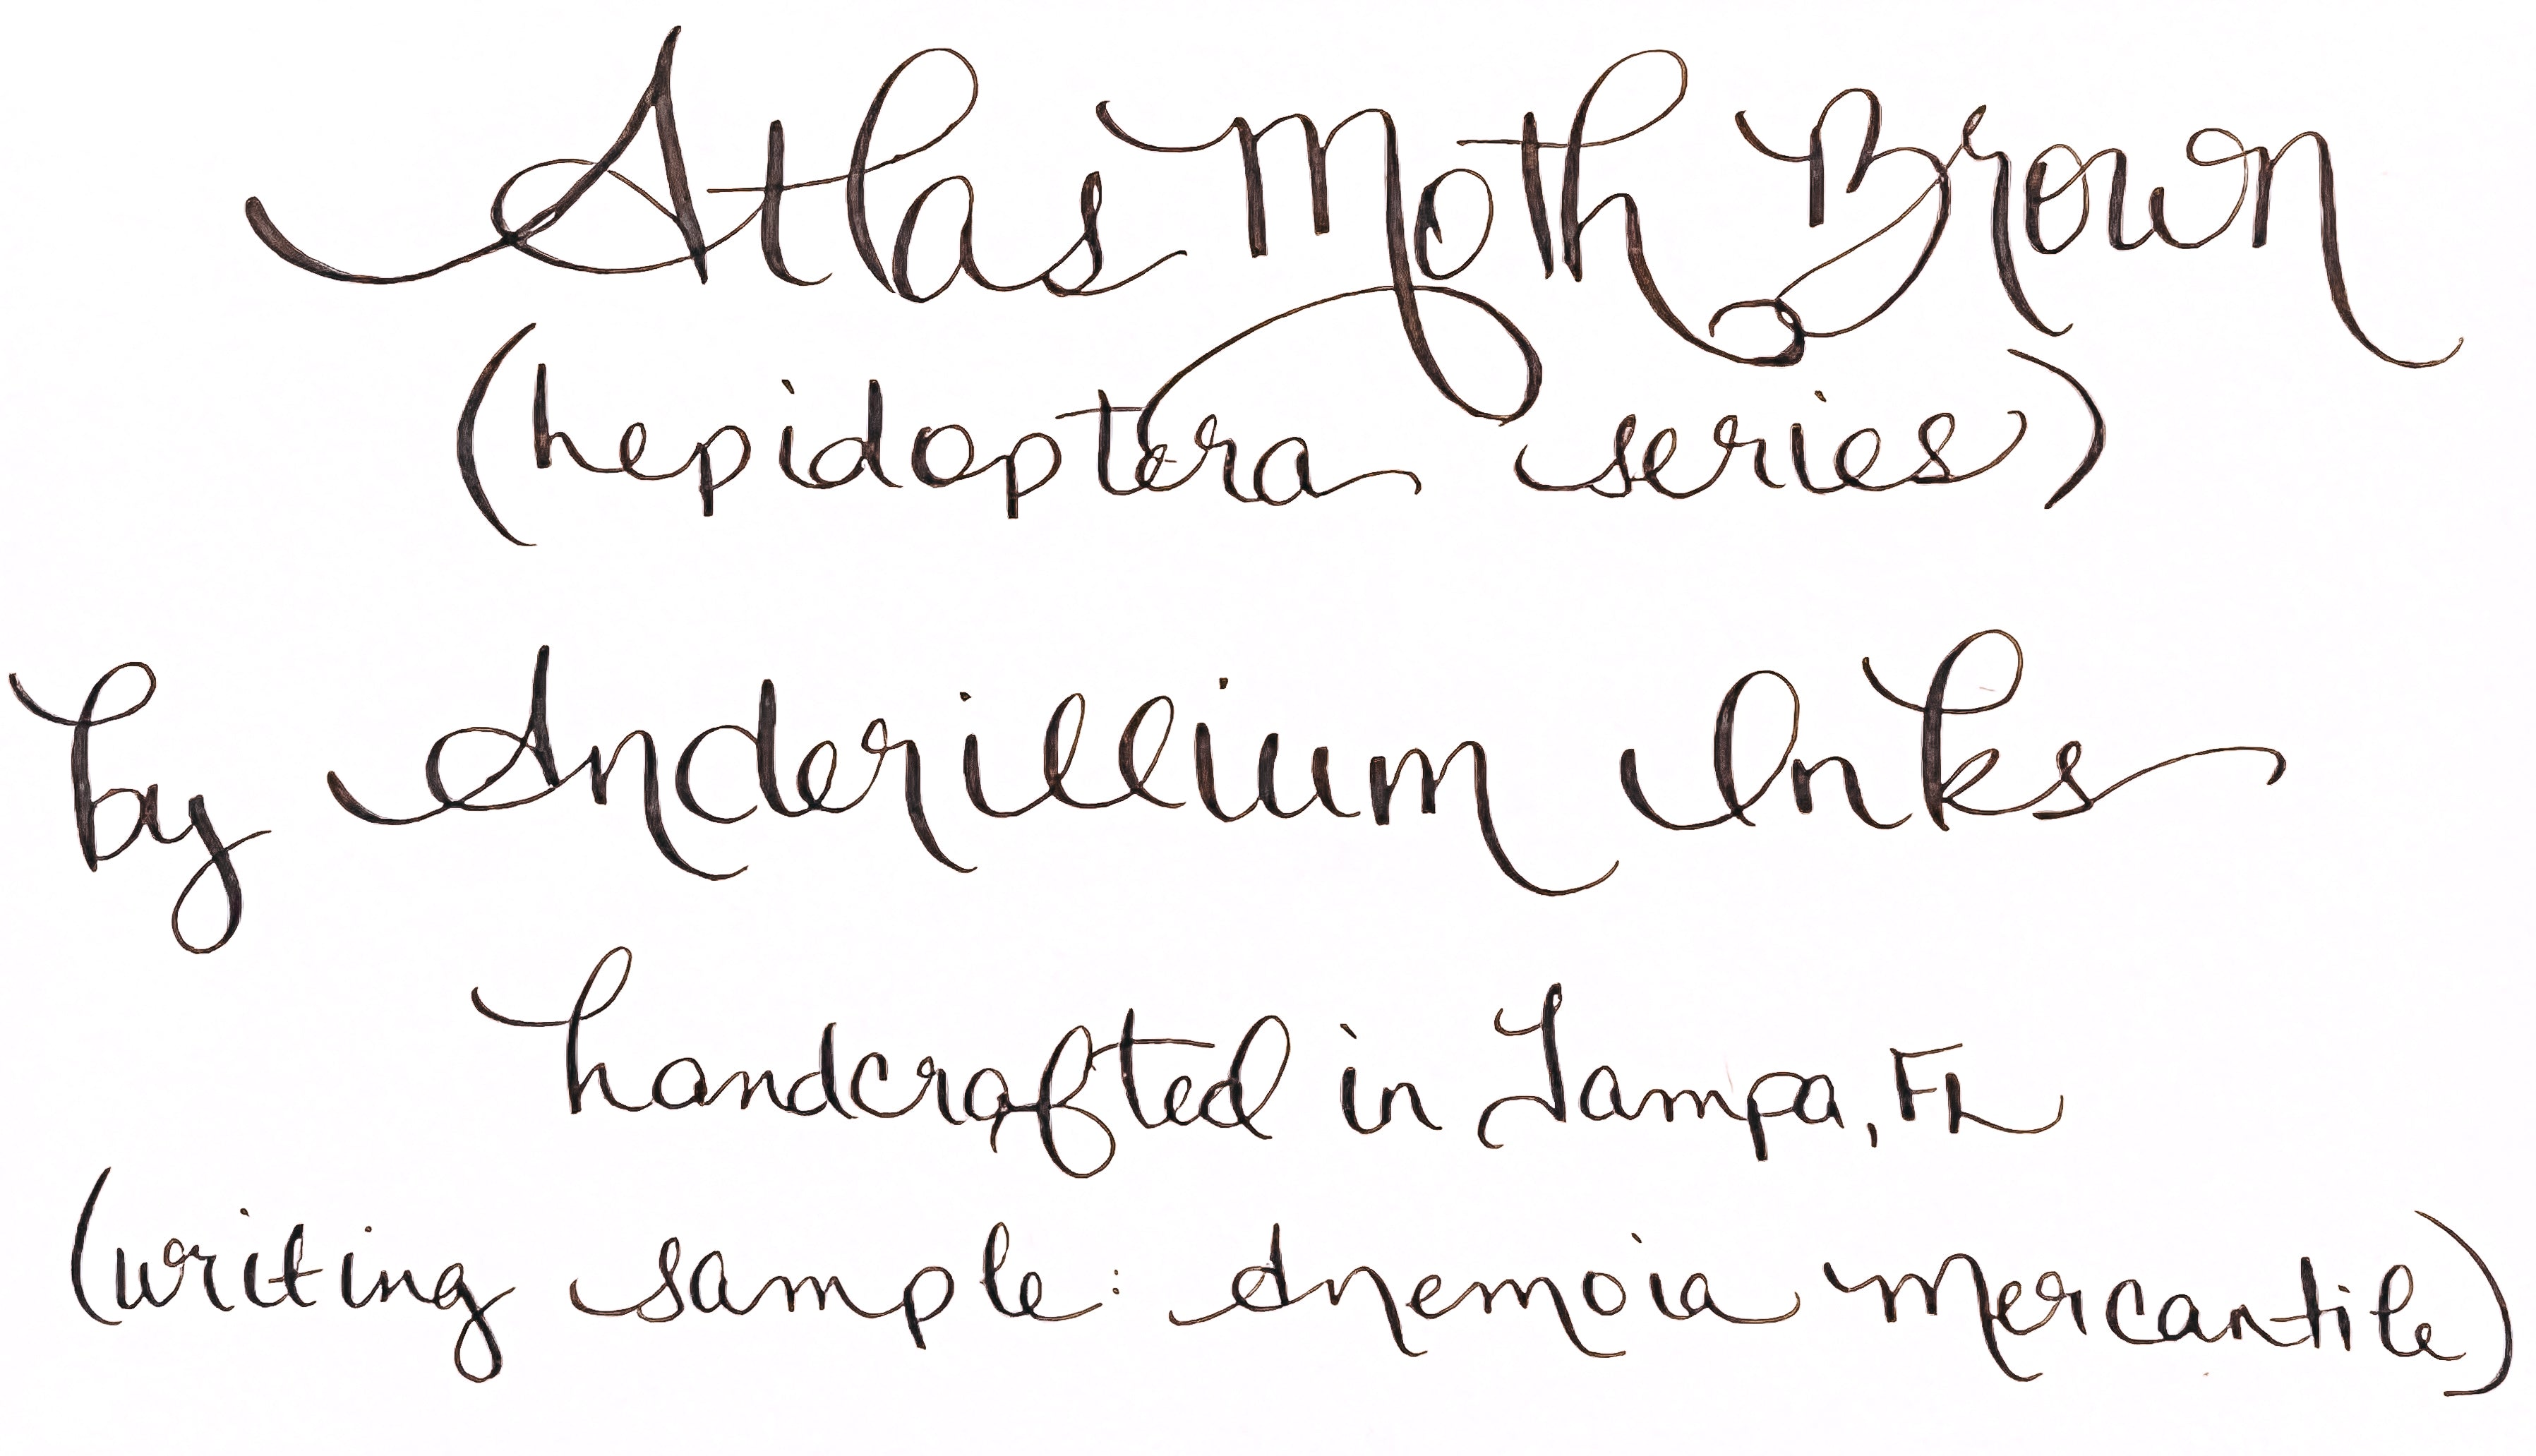 Atlas Moth Brown
(hepidoptera series)
by Anderillium Inks
handcrafted in Tampa, FL
(writing sample: Anemoia Mercantile)